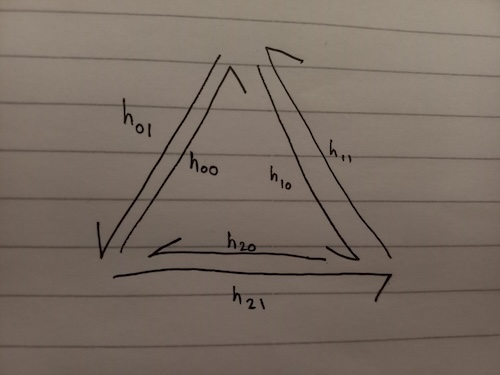 h01
h00
h11
h10
h20
h21